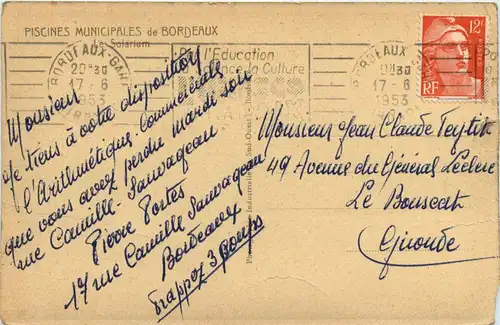 PISCINES MUNICIPALES DE BORDEAUX
Le Solarium
BORDEAUX-GARE
20H30
17-6
1953
l'Education
la Culture
BORDEAUX
17-6
1953
12F
RF
Monsieur
Je tiens à votre disposition
l'Arithmétique Commerciale
que vous avez perdu mardi soir
rue Camille-Sauvageau
Pierre Portes
17 rue Camille Sauvageau
Bordeaux
frappez 3 coups
Monsieur Jean Claude Teytit
49 Avenue du Général Leclerc
Le Bouscat
Gironde